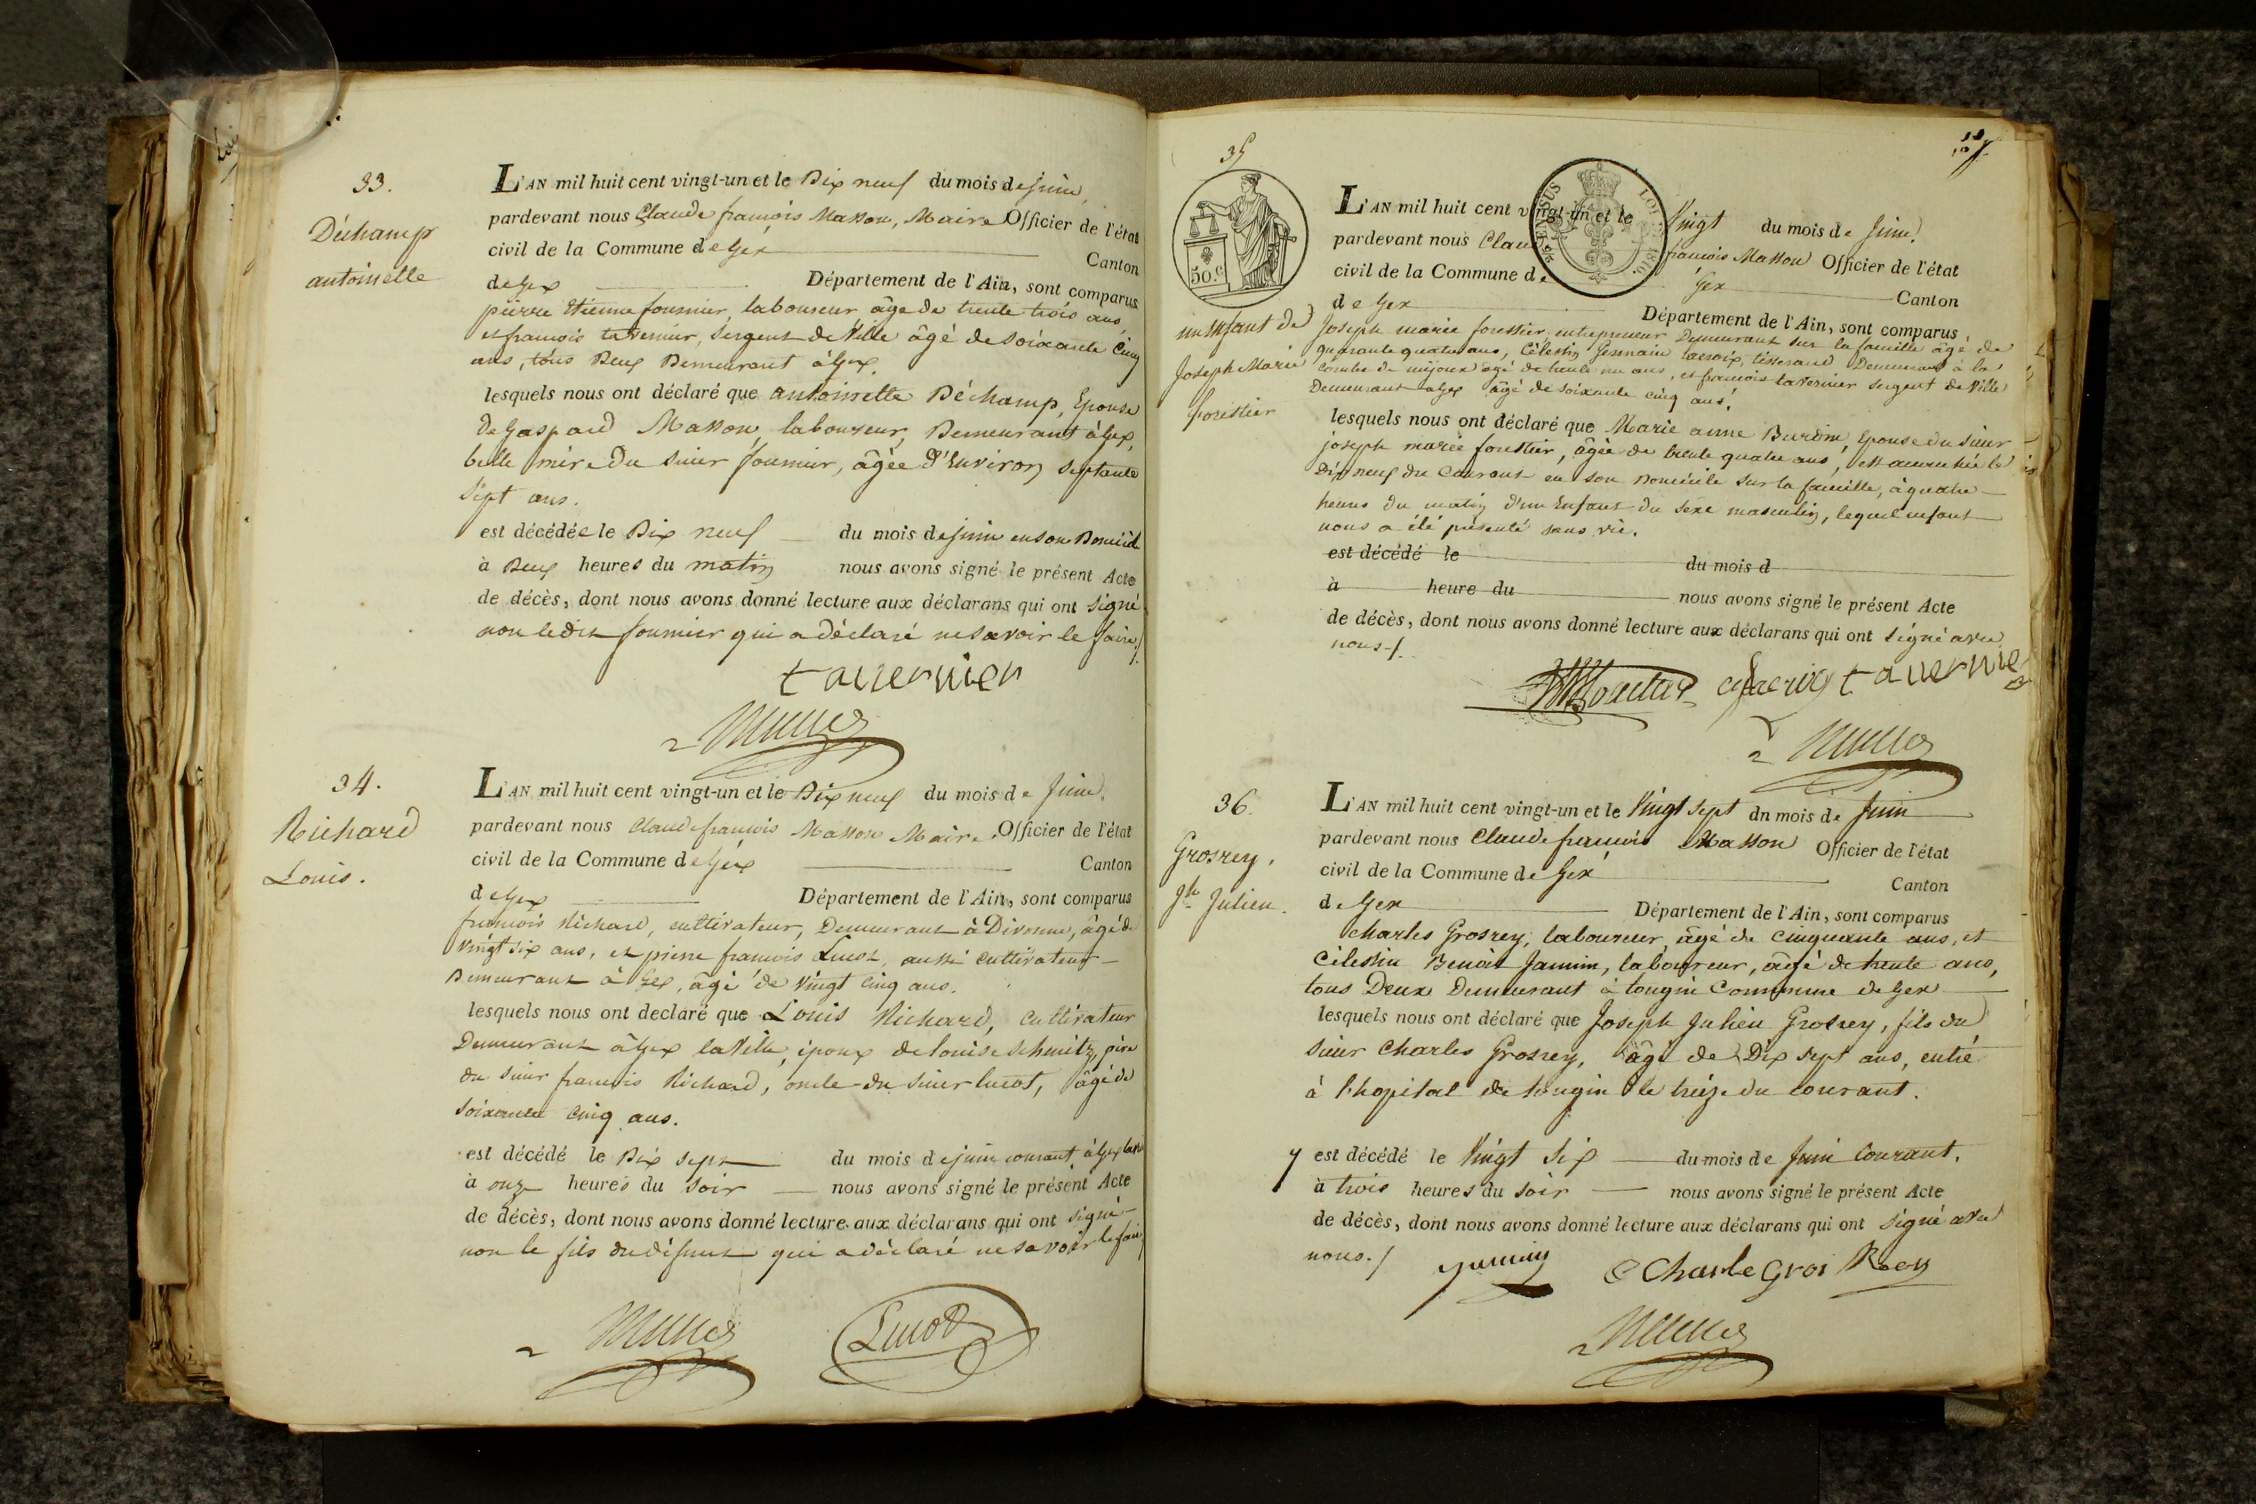 33.
Déchamp
antoinette
L'AN mil huit cent vingt-un et le Dix neuf du mois de juin,
pardevant nous Claude françois Masson, Maire Officier de l'état
civil de la Commune de Gex Canton
de Gex Département de l'Ain, sont comparus
pierre Etienne fournier, laboureur âgé de trente trois ans,
et françois tavernier, sergent de Ville âgé de soixante cinq
ans, tous Deux Demeurant à Gex.
lesquels nous ont déclaré que antoinette Déchamp, Epouse
de Gaspard Masson, laboureur, Demeurant à Gex,
belle mère du sieur fournier, âgée d'Environ septante
sept ans.
est décédée le Dix neuf du mois de juin en son Domicile
à Deux heures du matin nous avons signé le présent Acte
de décès, dont nous avons donné lecture aux déclarans qui ont signé
non ledit fournier qui a déclaré ne savoir le faire./.
tavernier
34.
Richard
Louis.
L'AN mil huit cent vingt-un et le Dix neuf du mois de Juin,
pardevant nous Claude françois Masson Maire Officier de l'état
civil de la Commune de Gex Canton
de Gex Département de l'Ain, sont comparus
françois Richard, cultivateur, Demeurant à Divonne, âgé de
Vingt six ans, et pierre françois Lucot, aussi cultivateur
Demeurant à Gex, âgé de Vingt cinq ans.
lesquels nous ont declaré que Louis Richard, cultivateur
Demeurant à Gex la Ville, époux de louise schmitz, père
du sieur françois Richard, oncle du sieur lucot, âgé de
soixante cinq ans.
est décédé le Dix sept du mois de juin courant, à Gex la Ville
à onze heures du soir nous avons signé le présent Acte
de décès, dont nous avons donné lecture aux déclarans qui ont signé
non le fils du défunt qui a déclaré ne savoir le faire
Lucot
35
50.c
un Enfant de
Joseph Marie
forestier
L'AN mil huit cent vingt-un et le Vingt du mois de Juin,
pardevant nous Claude françois Masson Officier de l'état
civil de la Commune de Gex Canton
de Gex Département de l'Ain, sont comparus
Joseph marie forestier entrepreneur Demeurant sur la faucille âgé de
quarante quatre ans, Célestin Germain lacroix, tisserand Demeurant à la
combe de mijoux âgé de trente un ans, et françois tavernier sergent de Ville
Demeurant à Gex âgé de soixante cinq ans.
lesquels nous ont déclaré que Marie anne Burdin, Epouse du sieur
joseph marie forestier, âgée de trente quatre ans, est accouchée le
Dix neuf du Courant en son Domicile sur la faucille, à quatre
heures du matin d'un Enfant du sexe masculin, lequel enfant
nous a été présenté sans vie.
est décédé le du mois d
à heure du nous avons signé le présent Acte
de décès, dont nous avons donné lecture aux déclarans qui ont signé avec
nous./.
tavernier
36.
Grosrey,
Jh. Julien.
L'AN mil huit cent vingt-un et le Vingt sept dn mois de Juin
pardevant nous Claude françois Masson Officier de l'état
civil de la Commune de Gex Canton
de Gex Département de l'Ain, sont comparus
Charles Grosrey, laboureur, âgé de cinquante ans, et
Célestin Benoit Jamin, laboureur, âgé de trente ans,
tous Deux Demeurant à tougin Commune de Gex
lesquels nous ont déclaré que Joseph Julien Grosrey, fils du
sieur Charles Grosrey, âgé de Dix sept ans, entré
à l'hopital de tougin le treize du courant.
est décédé le Vingt Six du mois de Juin Courant,
à trois heures du soir nous avons signé le présent Acte
de décès, dont nous avons donné lecture aux déclarans qui ont signé avec
nous./
jamin Charle Gros Rey